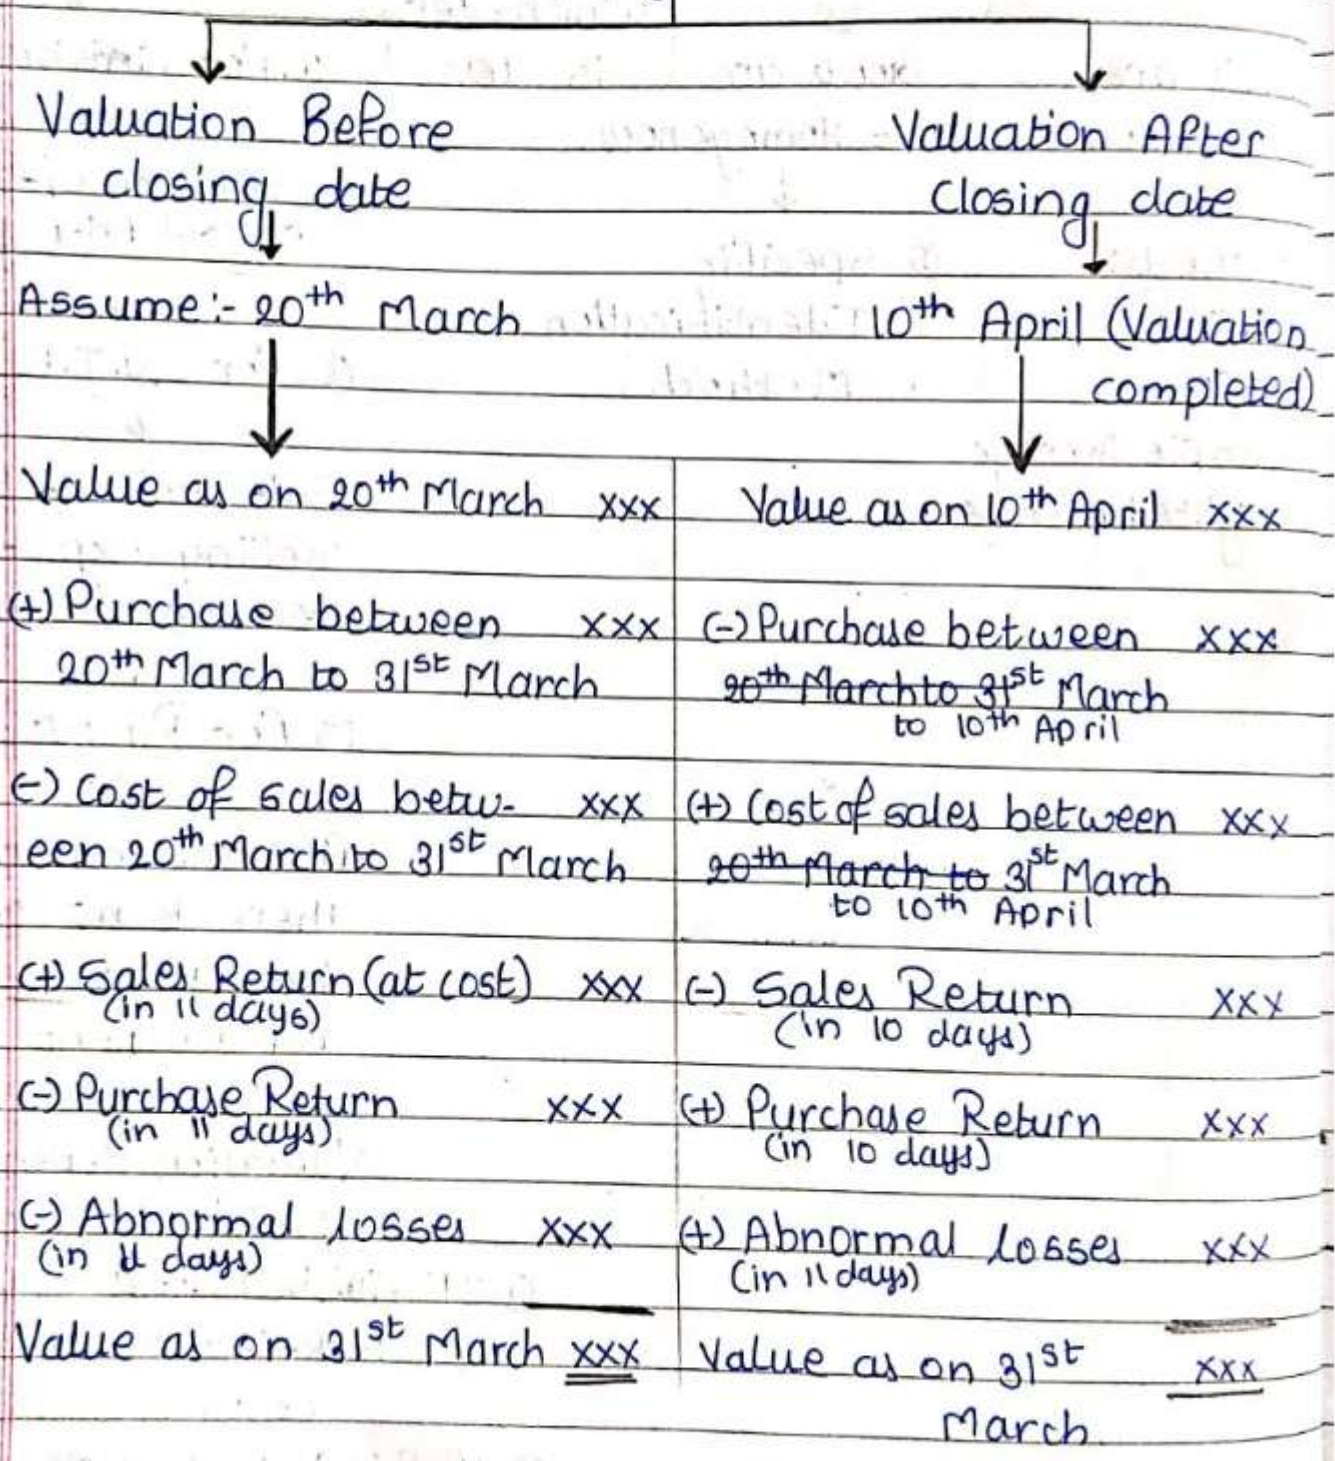 Valuation Before
closing date
Assume:- 20th March
Value as on 20th March xxx
(+) Purchase between xxx
20th March to 31st March
(-) Cost of sales betw-
een 20th March to 31st March xxx
(+) Sales Return (at cost) xxx
(in 11 days)
(-) Purchase Return xxx
(in 11 days)
(-) Abnormal losses xxx
(in 11 days)
Value as on 31st March xxx
Valuation After
Closing date
10th April (Valuation
completed)
Value as on 10th April xxx
(-) Purchase between xxx
20th March to 31st March
to 10th April
(+) Cost of sales between xxx
20th March to 31st March
to 10th April
(-) Sales Return xxx
(in 10 days)
(+) Purchase Return xxx
(in 10 days)
(+) Abnormal losses xxx
(in 11 days)
Value as on 31st xxx
March